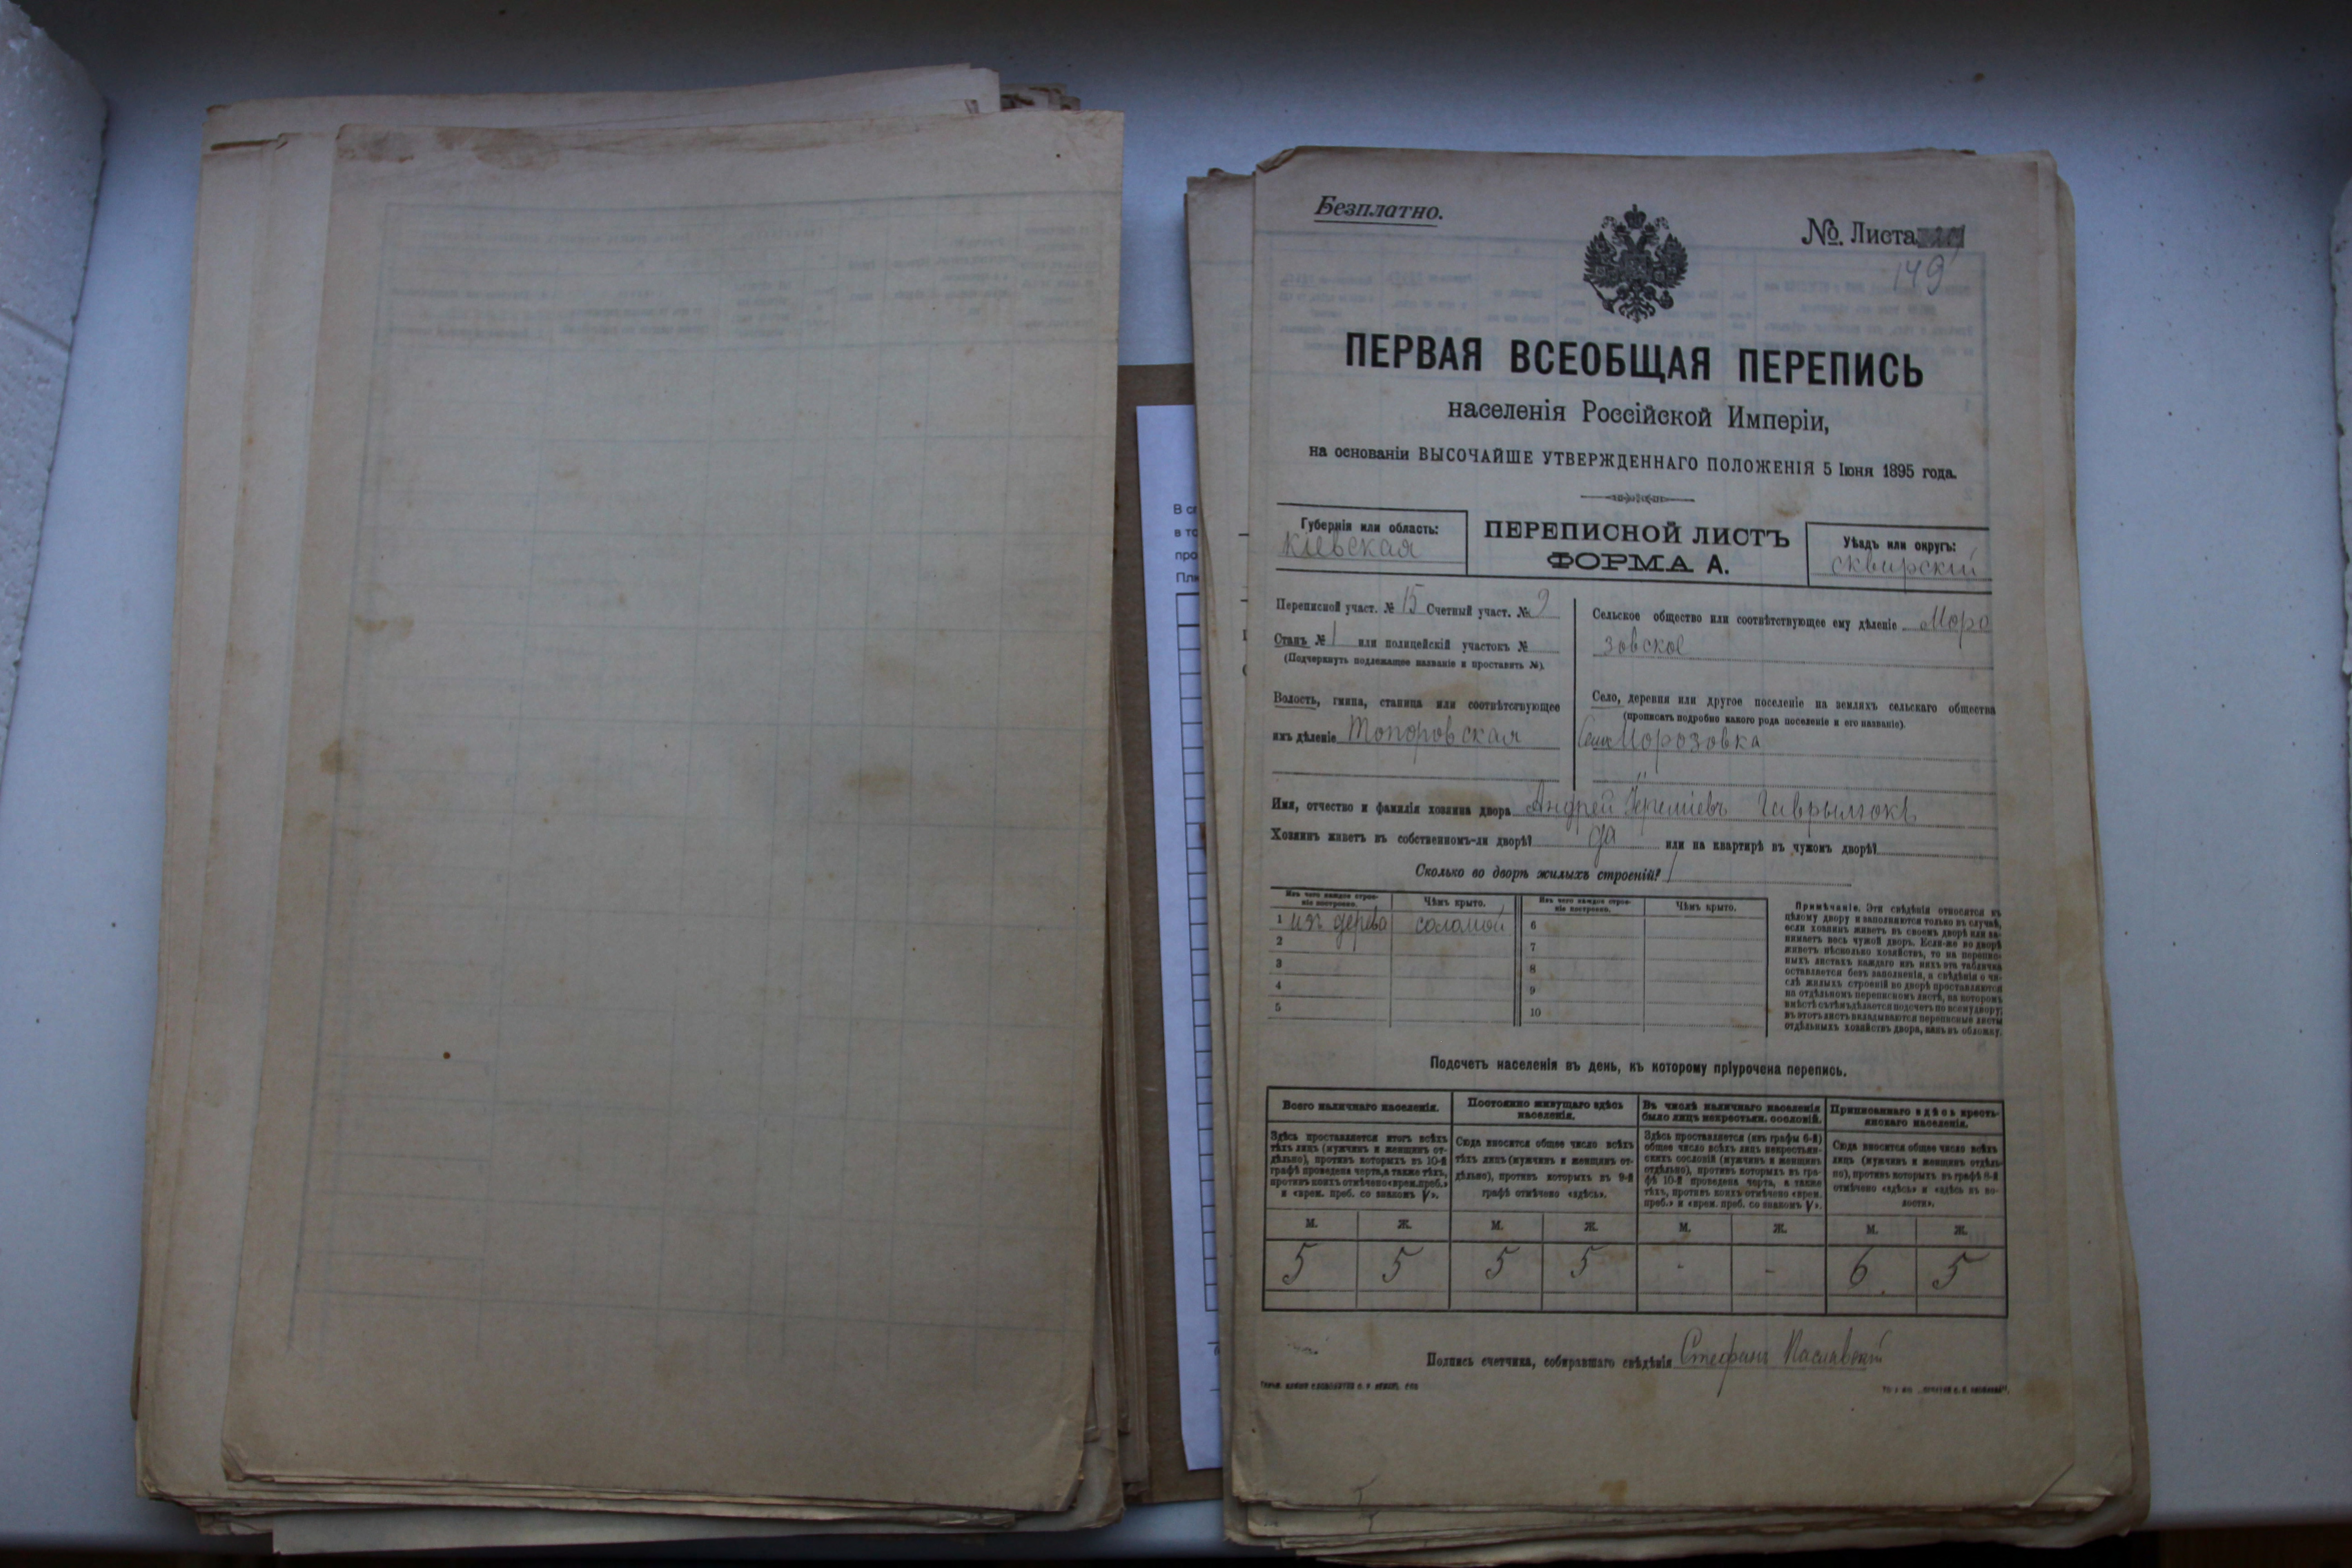 Безплатно.
№ Листа
149
ПЕРВАЯ ВСЕОБЩАЯ ПЕРЕПИСЬ
населенія Россійской Имперіи,
на основаніи ВЫСОЧАЙШЕ УТВЕРЖДЕННАГО ПОЛОЖЕНІЯ 5 Іюня 1895 года.
Губернія или область:
Кіевская
ПЕРЕПИСНОЙ ЛИСТЪ
ФОРМА А.
Уѣздъ или округъ:
Сквирскій
Переписной участ. № 15 Счетный участ. № 9
Станъ № 1 или полицейскій участокъ №
(Подчеркнуть подлежащее названіе и проставить №).
Волость, гмина, станица или соотвѣтствующее
имъ дѣленіе Топоровская
Сельское общество или соотвѣтствующее ему дѣленіе Моро
зовское
Село, деревня или другое поселеніе на земляхъ сельскаго общества
(прописать подробно какого рода поселеніе и его названіе).
Село Морозовка
Имя, отчество и фамилія хозяина двора Андрей Іереміевъ Гаврылюкъ
Хозяинъ живетъ въ собственномъ-ли дворѣ? да или на квартирѣ въ чужомъ дворѣ?
Сколько во дворѣ жилыхъ строеній? 1
Изъ чего каждое строе-
ніе построено.
Чѣмъ крыто.
Изъ чего каждое строе-
ніе построено.
Чѣмъ крыто.
1 изъ дерева соломой 6
2 7
3 8
4 9
5 10
Примѣчаніе. Эти свѣдѣнія относятся къ
цѣлому двору и заполняются только въ случаѣ,
если хозяинъ живетъ въ своемъ дворѣ или за-
нимаетъ весь чужой дворъ. Если-же во дворѣ
живетъ нѣсколько хозяйствъ, то на перепис-
ныхъ листахъ каждаго изъ нихъ эта табличка
оставляется безъ заполненія, а свѣдѣнія о чи-
слѣ жилыхъ строеній во дворѣ проставляются
на отдѣльномъ переписномъ листѣ, на которомъ
вмѣстѣ съ тѣмъ дѣлается подсчетъ по всему двору;
въ этотъ листъ вкладываются переписные листы
отдѣльныхъ хозяйствъ двора, какъ въ обложку.
Подсчетъ населенія въ день, къ которому пріурочена перепись.
Всего наличнаго населенія.
Здѣсь проставляется итогъ всѣхъ
тѣхъ лицъ (мужчинъ и женщинъ от-
дѣльно), противъ которыхъ въ 10-й
графѣ проведена черта, а также тѣхъ,
противъ коихъ отмѣчено «врем. преб.»
и «врем. преб. со знакомъ V».
Постоянно живущаго здѣсь
населенія.
Сюда вносится общее число всѣхъ
тѣхъ лицъ (мужчинъ и женщинъ от-
дѣльно), противъ которыхъ въ 9-й
графѣ отмѣчено «здѣсь».
Въ числѣ наличнаго населенія
было лицъ некрестьян. сословій.
Здѣсь проставляется (изъ графы 6-й)
общее число всѣхъ лицъ некрестьян-
скихъ сословій (мужчинъ и женщинъ
отдѣльно), противъ которыхъ въ гра-
фѣ 10-й проведена черта, а также
тѣхъ, противъ коихъ отмѣчено «врем.
преб.» и «врем. преб. со знакомъ V».
Приписаннаго здѣсь кресть-
янскаго населенія.
Сюда вносится общее число всѣхъ
лицъ (мужчинъ и женщинъ отдѣль-
но), противъ которыхъ въ графѣ 8-й
отмѣчено «здѣсь» и «здѣсь въ во-
лости».
М. Ж. М. Ж. М. Ж. М. Ж.
5 5 5 5 - - 6 5
Подпись счетчика, собиравшаго свѣдѣнія Стефанъ Паславскій